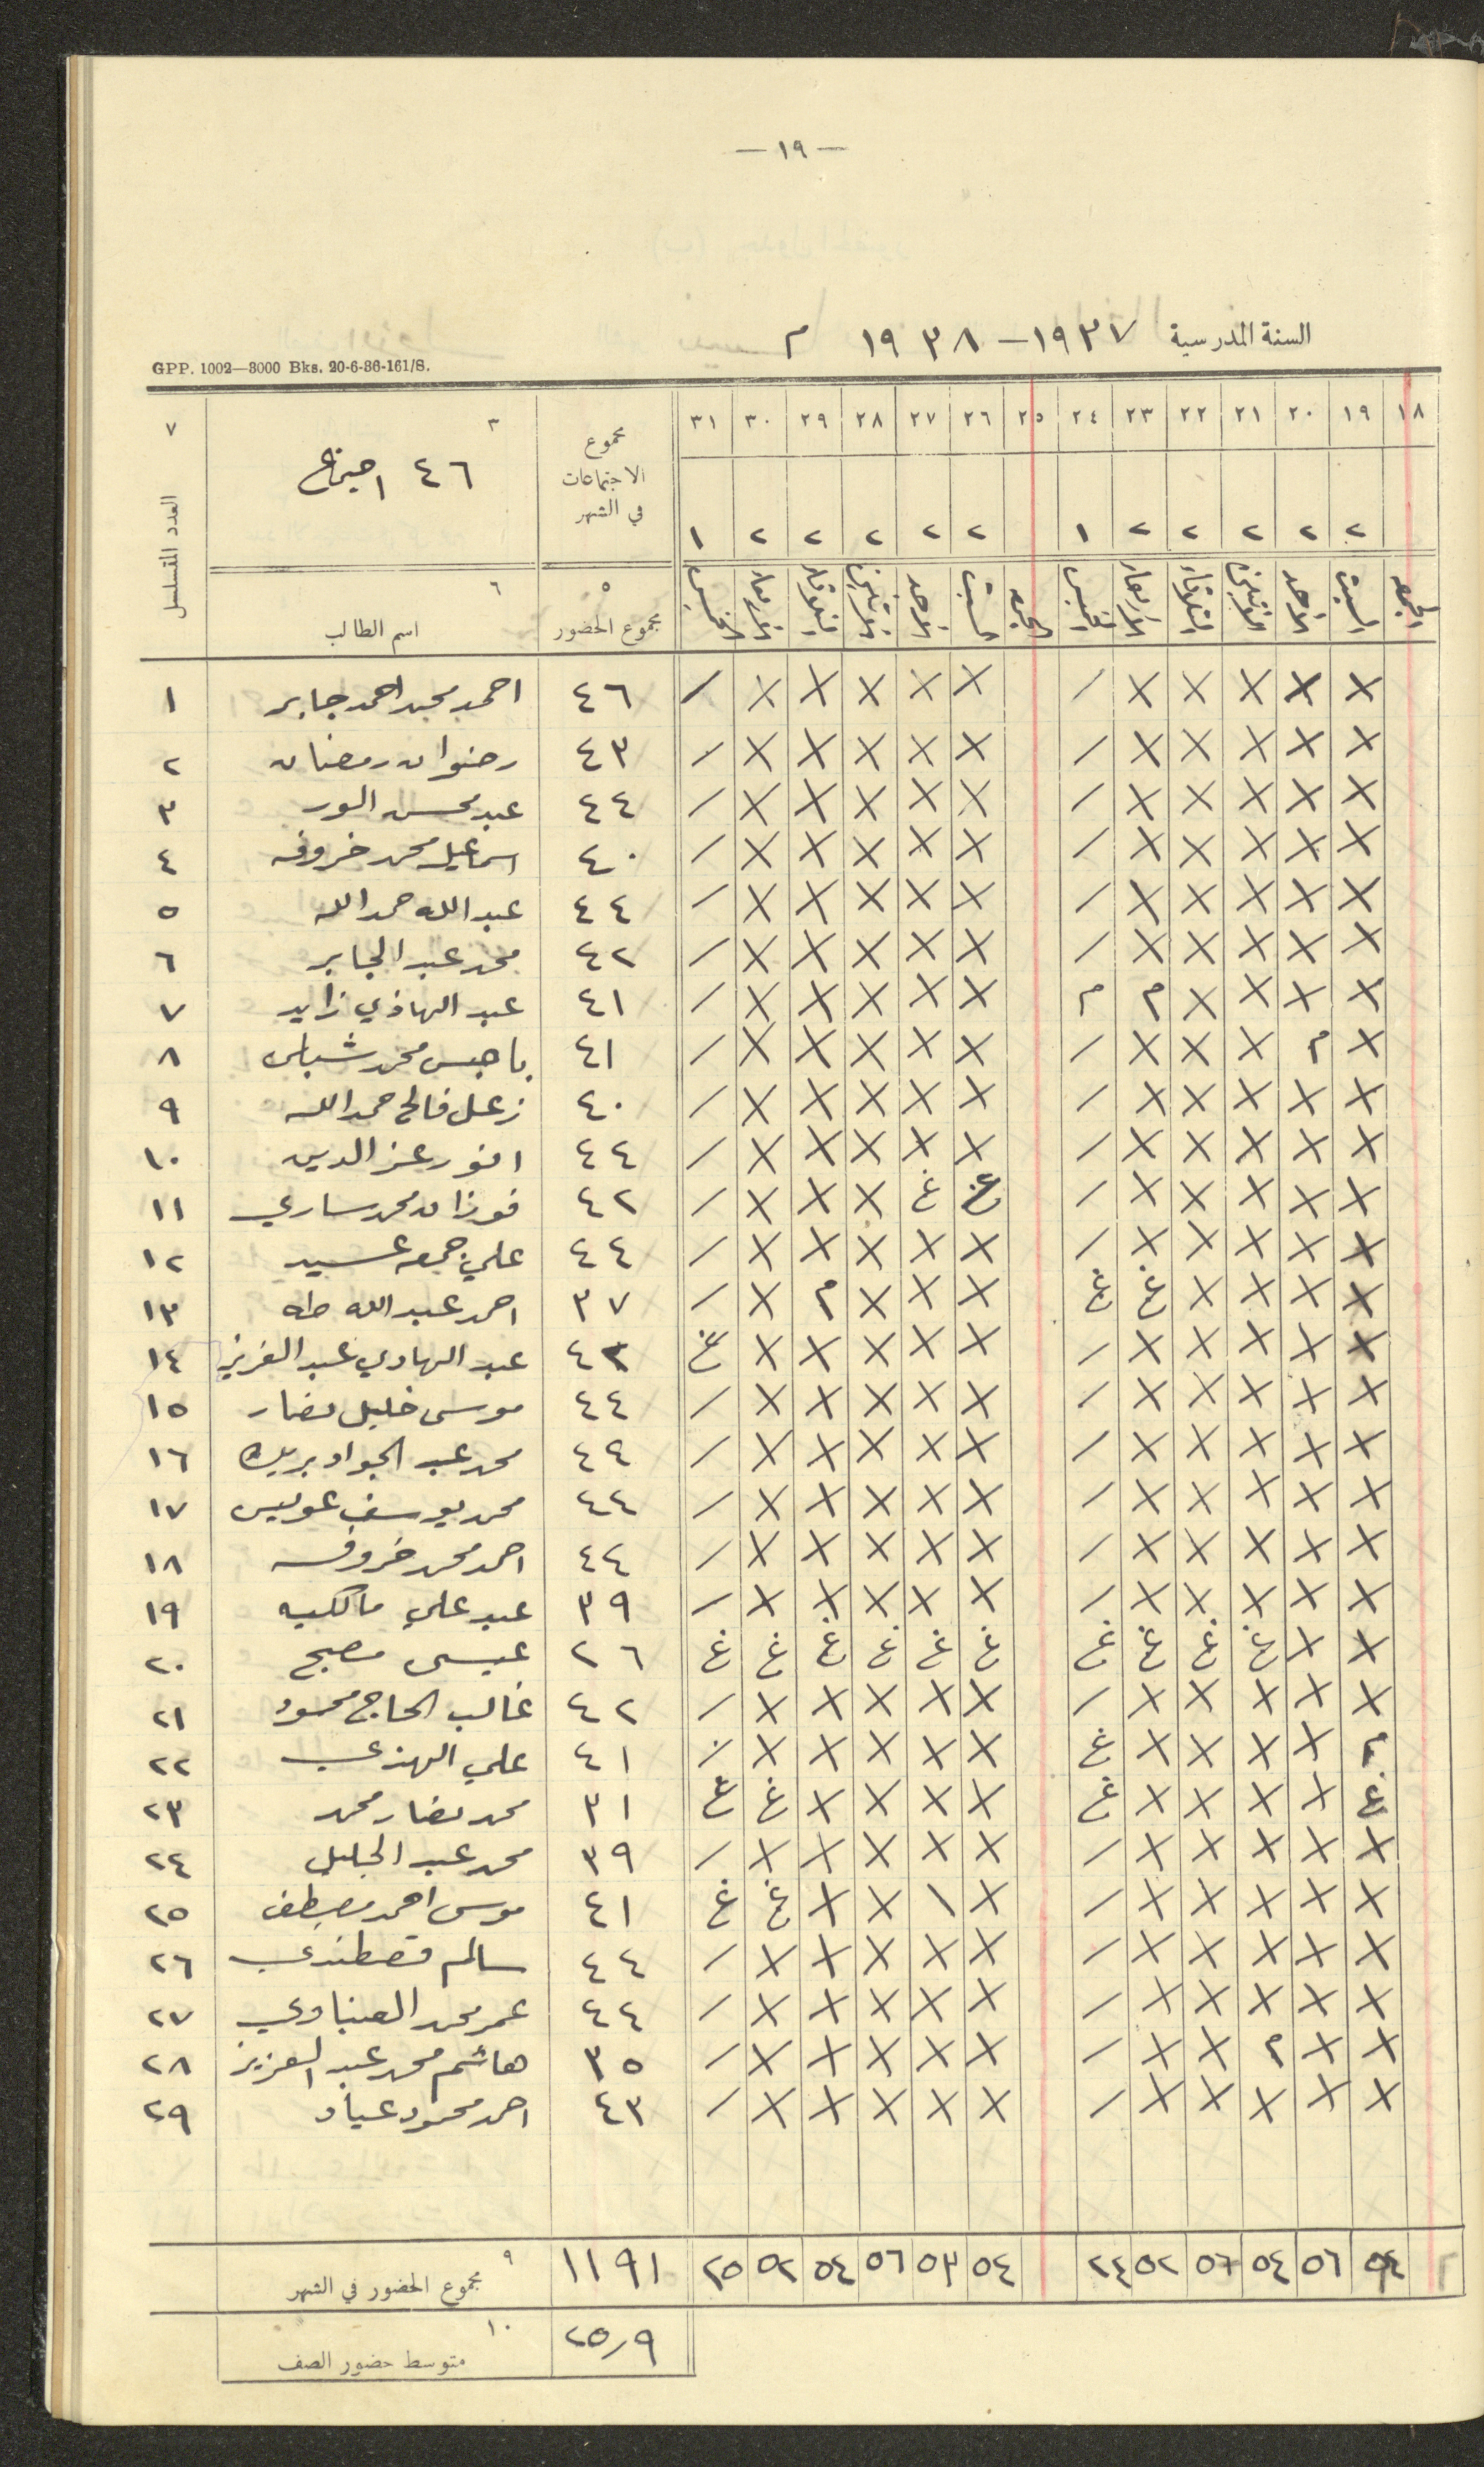 — ١٩ —
السنة المدرسية ١٩٣٧ — ١٩٣٨ م
GPP. 1002—3000 Bks. 20-6-36-161/S.
١٨ ١٩ ٢٠ ٢١ ٢٢ ٢٣ ٢٤ ٢٥ ٢٦ ٢٧ ٢٨ ٢٩ ٣٠ ٣١ مجموع الاجتماعات في الشهر ٣ ٧
٤٦ اجتماع
٢ ٢ ٢ ٢ ٢ ١ ٢ ٢ ٢ ٢ ٢ ١
الجمعه السبت الاحد الاثنين الثلاثاء الاربعاء الخميس الجمعه السبت الاحد الاثنين الثلاثاء الاربعاء الخميس ٥ مجموع الحضور ٦ اسم الطالب العدد المتسلسل
X X X X X / X X X X X / ٤٦ احمد محمد احمد جابر ١
X X X X X / X X X X X / ٤٣ رضوان رمضان ٢
X X X X X / X X X X X / ٤٤ عبد محسن الور ٣
X X X X X / X X X X X / ٤٠ اسماعيل محمد خروفه ٤
X X X X X / X X X X X / ٤٤ عبد الله حمد الله ٥
X X X X X / X X X X X / ٤٢ محمد عبد الجابر ٦
X X X X م م X X X X X / ٤١ عبد الهادي زايد ٧
X م X X X / X X X X X / ٤١ باجس محمد شبلي ٨
X X X X X / X X X X X / ٤٠ زعل فالح حمد الله ٩
X X X X X / X X X X X / ٤٤ انور عز الدين ١٠
X X X X X / غ غ X X X / ٤٢ فوزان محمد ساري ١١
X X X X X / X X X X X / ٤٤ علي جمعه عسيد ١٢
X X X X غ غ X X X م X / ٣٧ احمد عبد الله طه ١٣
X X X X X / X X X X X غ ٤٣ عبد الهادي عبد العزيز ١٤
X X X X X / X X X X X / ٤٤ موسى خليل نصار ١٥
X X X X X / X X X X X / ٤٤ محمد عبد الجواد بريك ١٦
X X X X X / X X X X X / ٤٤ محمد يوسف عويس ١٧
X X X X X / X X X X X / ٤٤ احمد محمد خروفه ١٨
X X X X X / X X X X X / ٣٩ عبد علي مالكيه ١٩
X X غ غ غ غ غ غ غ غ غ غ ٢٦ عيسى مصبح ٢٠
X X X X X / X X X X X / ٤٢ غالب الحاج محمود ٢١
م X X X X غ X X X X X / ٤١ علي الهندي ٢٢
غ X X X X غ X X X X غ غ ٣١ محمد نصار محمد ٢٣
X X X X X / X X X X X / ٣٩ محمد عبد الجليل ٢٤
X X X X X / X \ X X غ غ ٤١ موسى احمد مصطفى ٢٥
X X X X X / X X X X X / ٤٤ سالم قسطندي ٢٦
X X X X X / X X X X X / ٤٤ عمر محمد العيناوي ٢٧
X X م X X / X X X X X / ٣٥ هاشم محمد عبد العزيز ٢٨
X X X X X / X X X X X / ٤٣ احمد محمود عياد ٢٩
٥٤ ٥٦ ٥٤ ٥٦ ٥٢ ٢٤ ٥٤ ٥٣ ٥٦ ٥٤ ٥٢ ٢٥ ١١٩١ ٩ مجموع الحضور في الشهر
٢٥٫٩ ١٠ متوسط حضور الصف